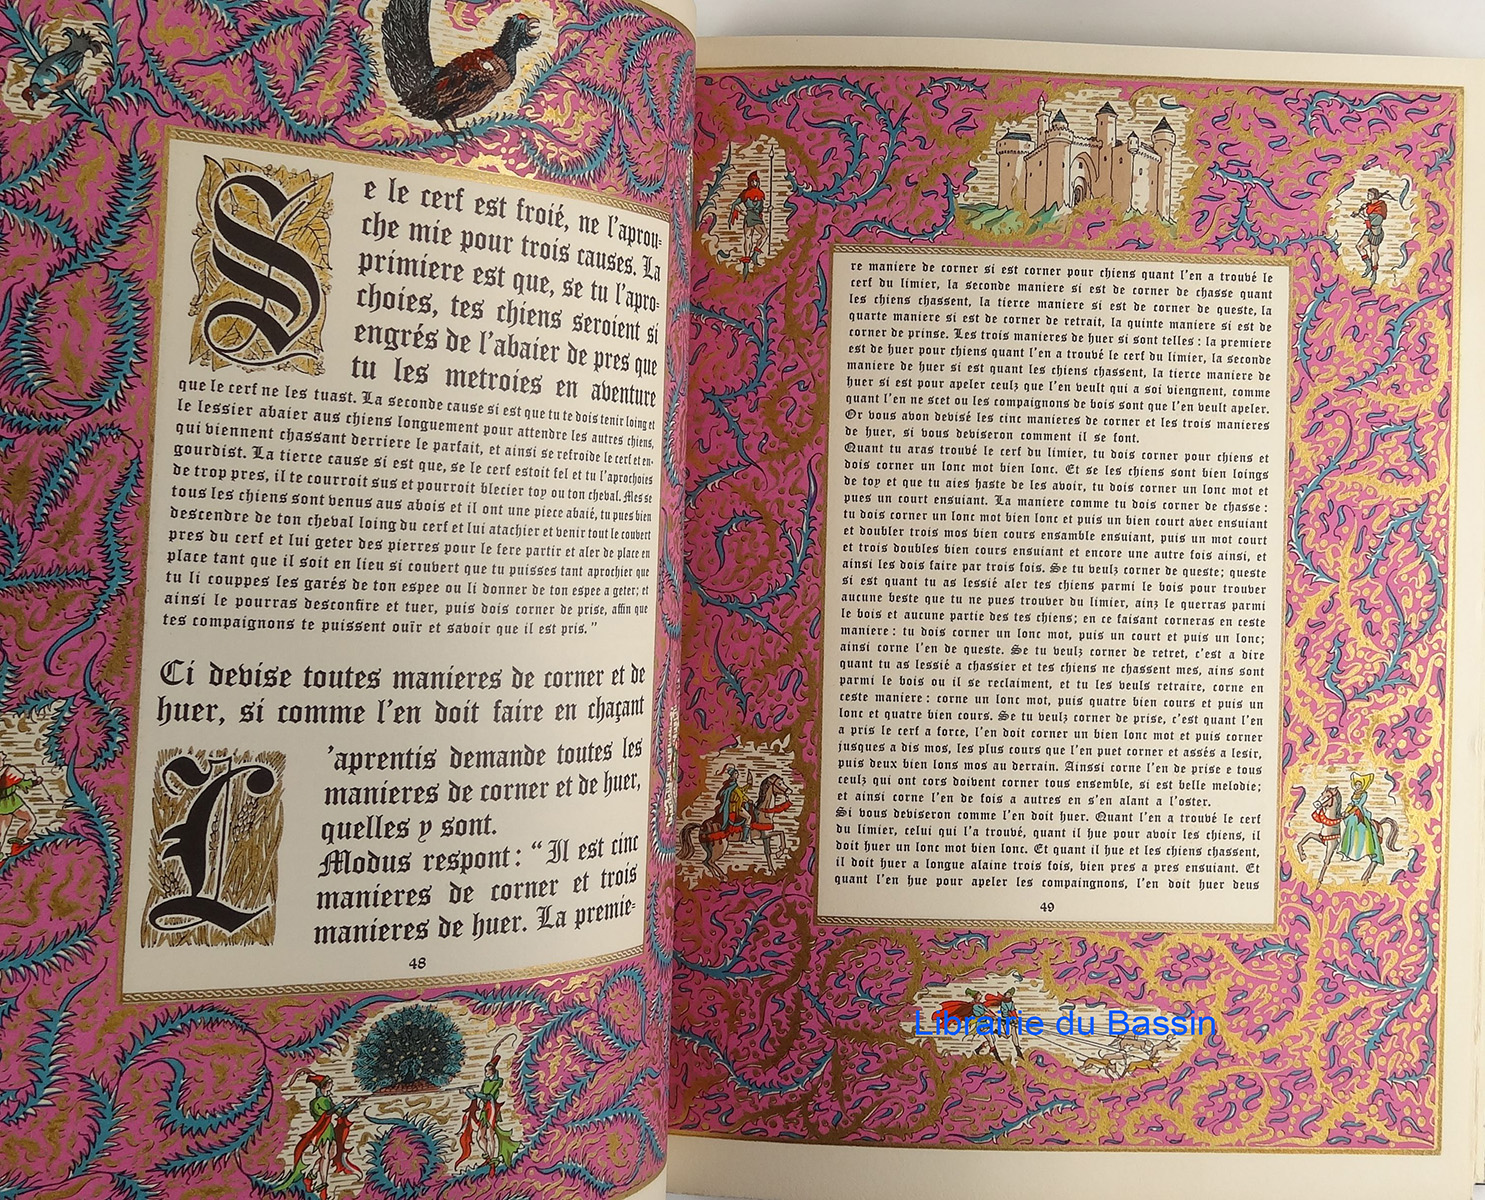 Se le cerf est froié, ne l'aprou-
che mie pour trois causes. La
primiere est que, se tu l'apro-
choies, tes chiens seroient si
engrés de l'abaier de pres que
tu les metroies en aventure
que le cerf ne les tuast. La seconde cause si est que tu te dois tenir loing et
le lessier abaier aus chiens longuement pour attendre les autres chiens,
qui viennent chassant derriere le parfait, et ainsi se refroide le cerf et en-
gourdist. La tierce cause si est que, se le cerf estoit fel et tu l'aprochoies
de trop pres, il te courroit sus et pourroit blecier toy ou ton cheval. Mes se
tous les chiens sont venus aus abois et il ont une piece abaié, tu pues bien
descendre de ton cheval loing du cerf et lui atachier et venir tout le couvert
pres du cerf et lui geter des pierres pour le fere partir et aler de place en
place tant que il soit en lieu si couvert que tu puisses tant aprochier que
tu li couppes les garés de ton espee ou li donner de ton espee a geter; et
ainsi le pourras desconfire et tuer, puis dois corner de prise, affin que
tes compaignons te puissent ouïr et savoir que il est pris."
Ci devise toutes manieres de corner et de
huer, si comme l'en doit faire en chaçant
L'aprentis demande toutes les
manieres de corner et de huer,
quelles y sont.
Modus respont : "Il est cinc
manieres de corner et trois
manieres de huer. La premie-
48
re maniere de corner si est corner pour chiens quant l'en a trouvé le
cerf du limier, la seconde maniere si est de corner de chasse quant
les chiens chassent, la tierce maniere si est de corner de queste, la
quarte maniere si est de corner de retrait, la quinte maniere si est de
corner de prinse. Les trois manieres de huer si sont telles : la premiere
est de huer pour chiens quant l'en a trouvé le cerf du limier, la seconde
maniere de huer si est quant les chiens chassent, la tierce maniere de
huer si est pour apeler ceulz que l'en veult qui a soi viengnent, comme
quant l'en ne scet ou les compaignons de bois sont que l'en veult apeler.
Or vous avon devisé les cinc manieres de corner et les trois manieres
de huer, si vous deviseron comment il se font.
Quant tu aras trouvé le cerf du limier, tu dois corner pour chiens et
dois corner un lonc mot bien lonc. Et se les chiens sont bien loings
de toy et que tu aies haste de les avoir, tu dois corner un lonc mot et
pues un court ensuiant. La maniere comme tu dois corner de chasse :
tu dois corner un lonc mot bien lonc et puis un bien court avec ensuiant
et doubler trois mos bien cours ensamble ensuiant, puis un mot court
et trois doubles bien cours ensuiant et encore une autre fois ainsi, et
ainsi les dois faire par trois fois. Se tu veulz corner de queste; queste
si est quant tu as lessié aler tes chiens parmi le bois pour trouber
aucune beste que tu ne pues trouber du limier, ainz le querras parmi
le bois et aucune partie des tes chiens; en ce faisant corneras en ceste
maniere : tu dois corner un lonc mot, puis un court et puis un lonc;
ainsi corne l'en de queste. Se tu veulz corner de retret, c'est a dire
quant tu as lessié a chassier et tes chiens ne chassent mes, ains sont
parmi le bois ou il se reclaiment, et tu les veuls retraire, corne en
ceste maniere : corne un lonc mot, puis quatre bien cours et puis un
lonc et quatre bien cours. Se tu veulz corner de prise, c'est quant l'en
a pris le cerf a force, l'en doit corner un bien lonc mot et puis corner
jusques a dis mos, les plus cours que l'en puet corner et assés a lesir,
puis deux bien lons mos au derrain. Ainssi corne l'en de prise e tous
ceulz qui ont cors doibent corner tous ensemble, si est belle melodie;
et ainsi corne l'en de fois a autres en s'en alant a l'oster.
Si vous deviseron comme l'en doit huer. Quant l'en a trouvé le cerf
du limier, celui qui l'a trouvé, quant il hue pour avoir les chiens, il
doit huer un lonc mot bien lonc. Et quant il hue et les chiens chassent,
il doit huer a longue alaine trois fois, bien pres a pres ensuiant. Et
quant l'en hue pour apeler les compaingnons, l'en doit huer deus
49
Librairie du Bassin